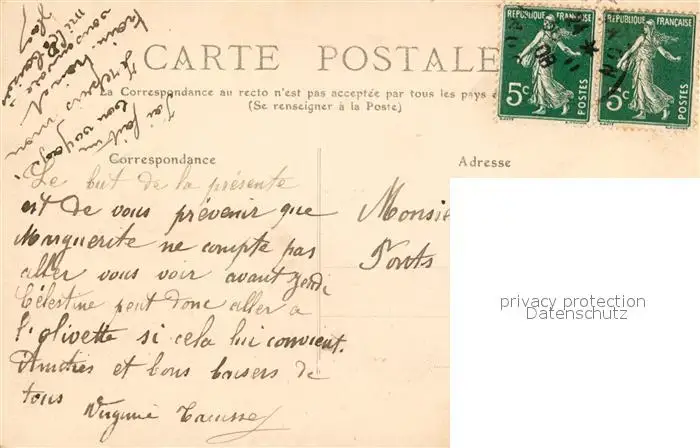 CARTE POSTALE
La Correspondance au recto n'est pas acceptée par tous les pays
(Se renseigner à la Poste)
RÉPUBLIQUE FRANÇAISE
5c
POSTES
RÉPUBLIQUE FRANÇAISE
5c
POSTES
J'ai fait un
bon voyage
Je repris mon
Correspondance
Le but de la présente
est de vous prévenir que
Marguerite ne compte pas
aller vous voir avant
Célestine peut donc aller a
l'olivette si cela lui convient.
Amitiés et bons baisers de
tous
Virginie
Adresse
Monsie
Ponts
privacy protection
Datenschutz